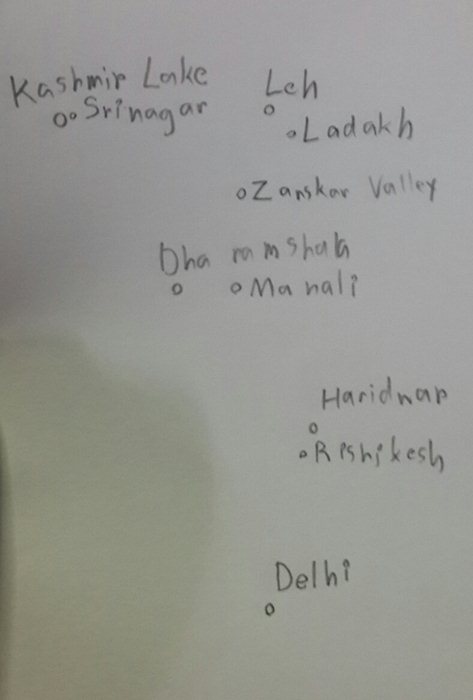 Kashmir Lake
Srinagar
Leh
Ladakh
Zanskar Valley
Dharamshala
Manali
Haridwar
Rishikesh
Delhi